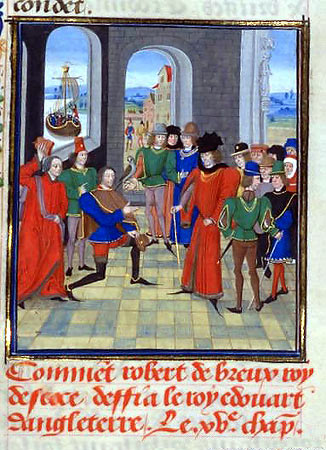 condet.
Commēt robert de breux roy
descoce deffia le roy edouart
dangleterre. Le .xve. chap.